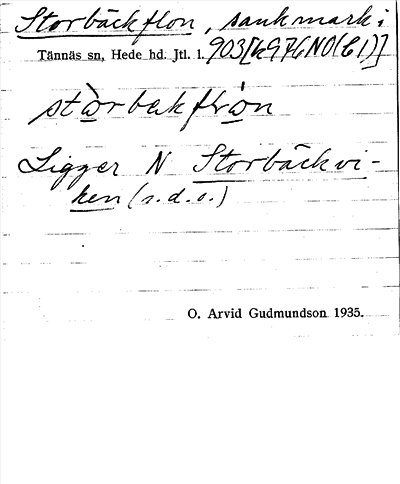 Storbäckflon, sankmark i
Tännäs sn, Hede hd. Jtl. l. 903[k976NO(C1)]
Ligger N Storbäckvi-
ken (s.d.o.)
O. Arvid Gudmundson 1935.